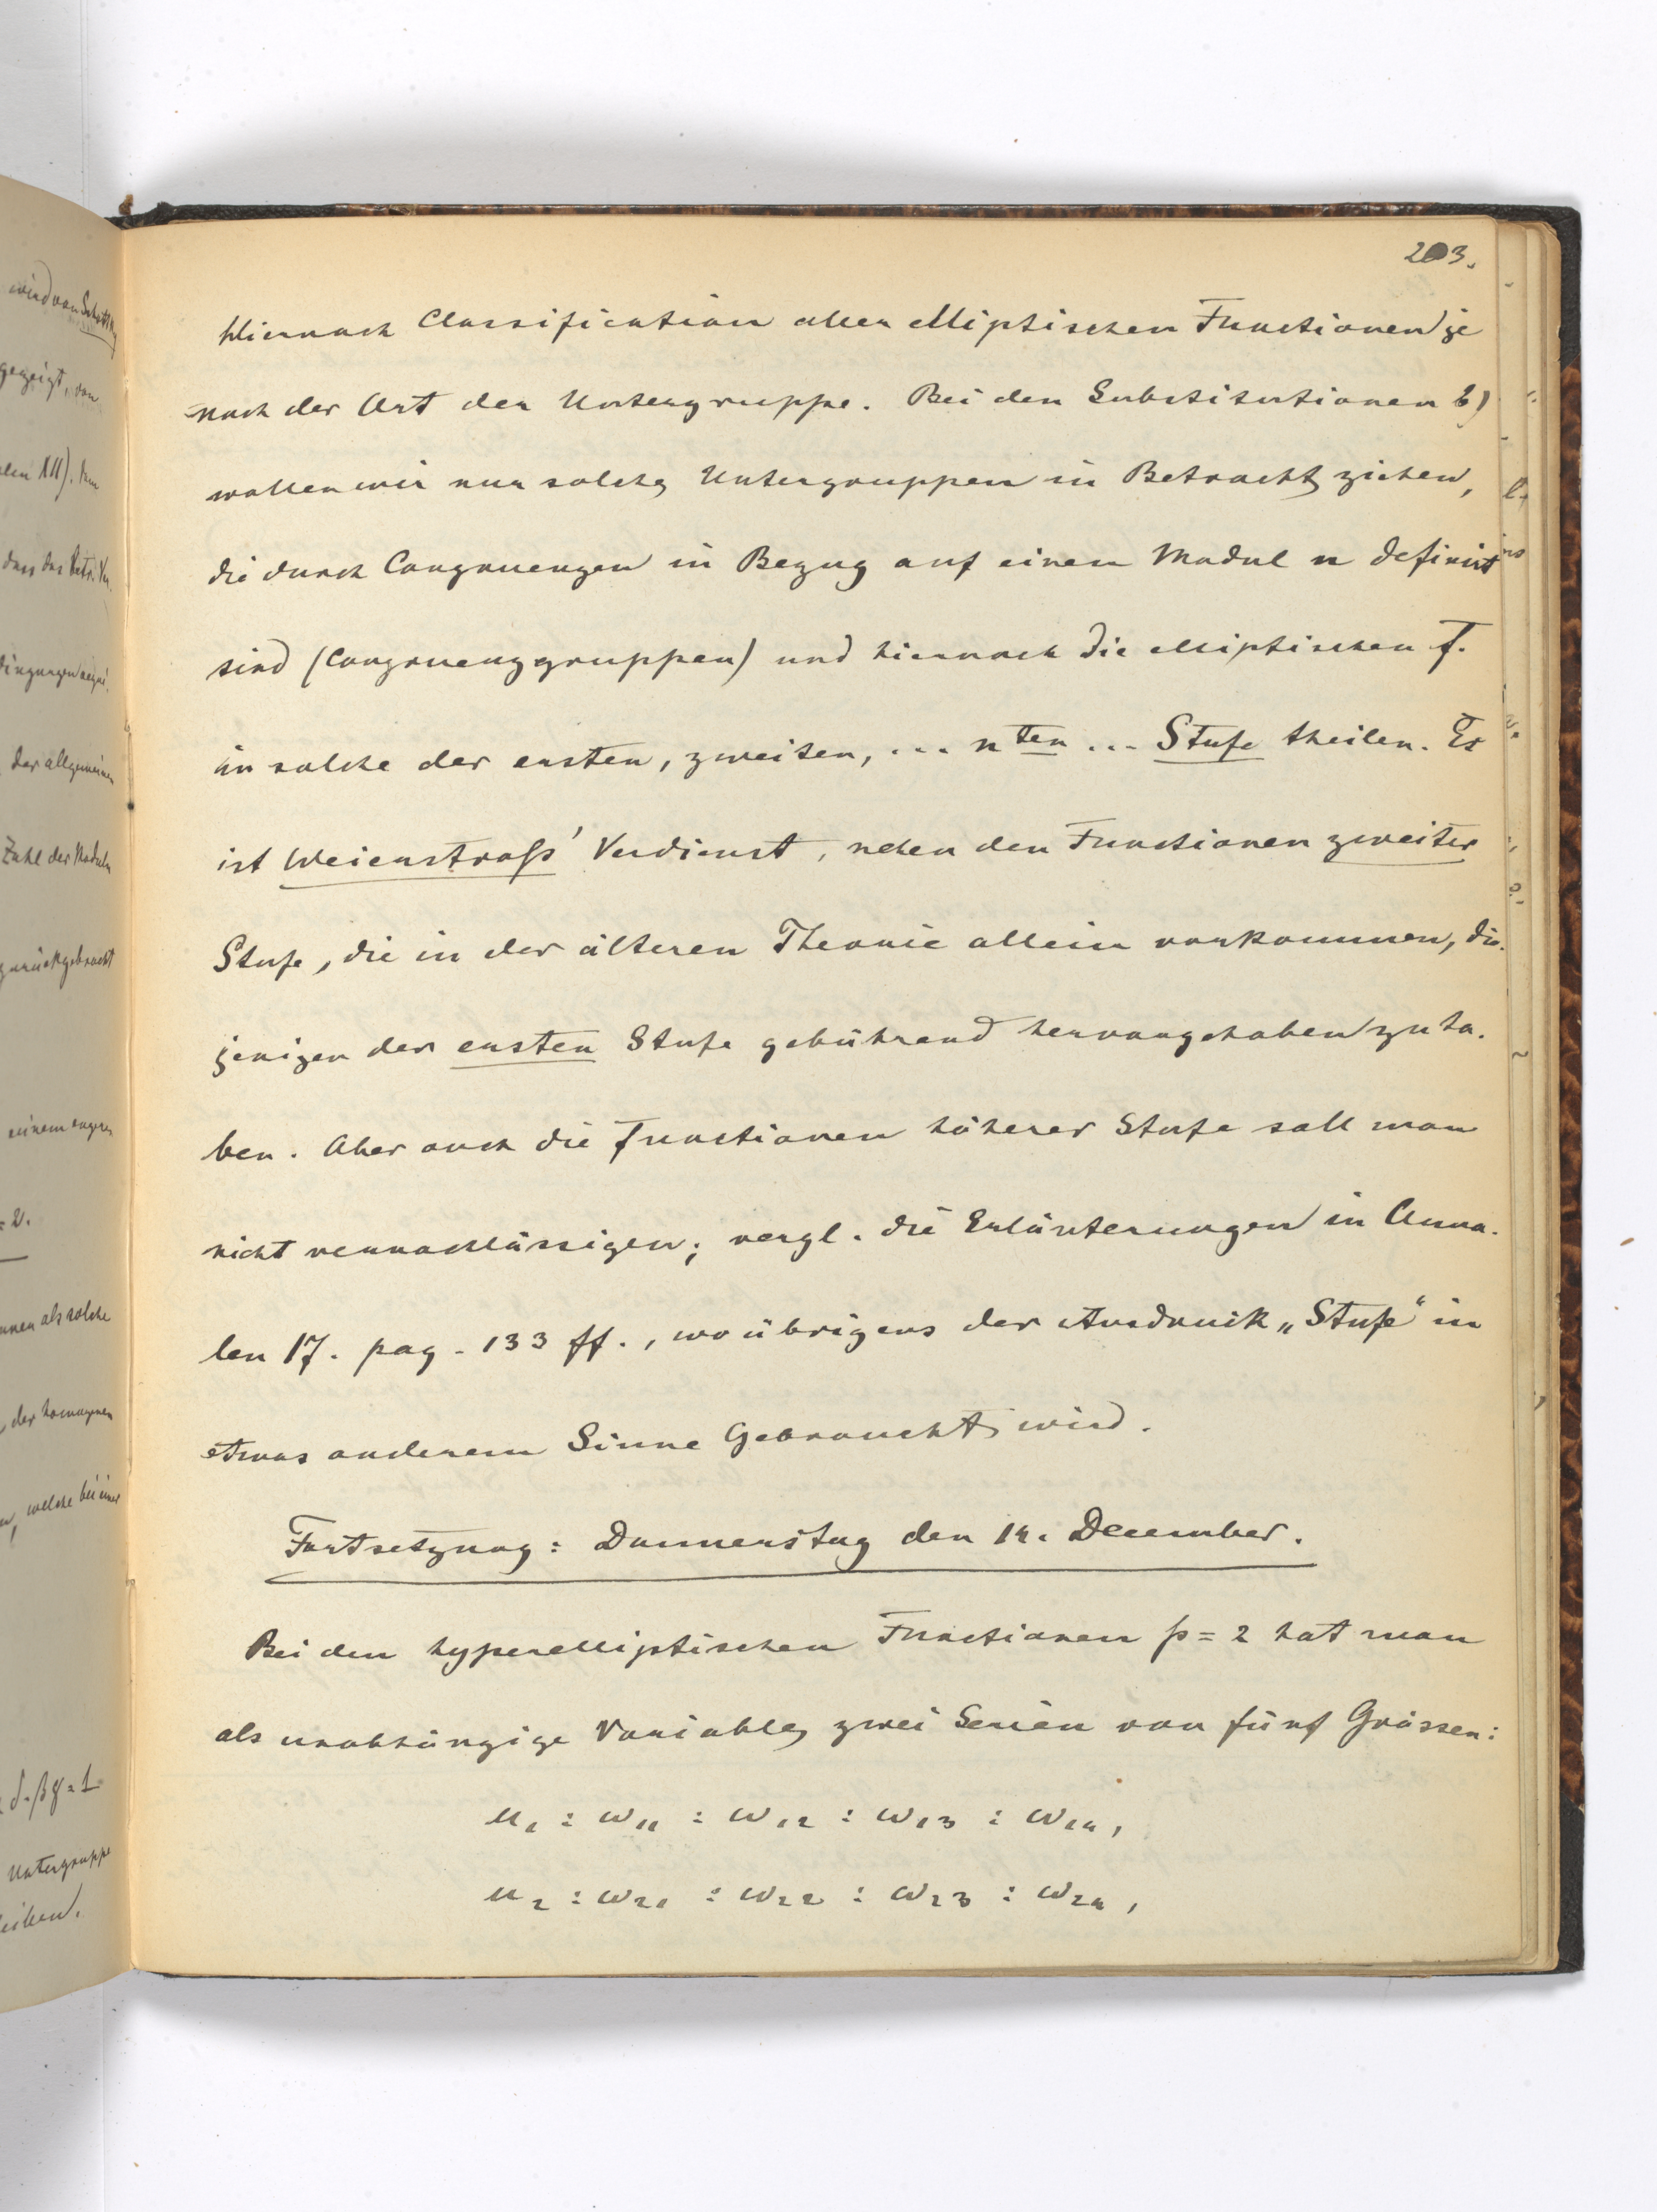 203.
Hiernach Classification aller elliptischen Functionen je
nach der Art der Untergruppe. Bei den Substitutionen b)
wollen wir nur solche Untergruppen in Betracht ziehen,
die durch Congruenzen in Bezug auf einen Modul n definirt
sind (Congruenzgruppen) und hiernach die elliptischen F.
in solche der ersten, zweiten, ... nten ... Stufe theilen. Es
ist Weierstraß' Verdienst, neben den Functionen zweiter
Stufe, die in der älteren Theorie allein vorkommen, die-
jenigen der ersten Stufe gebührend hervorgehoben zu ha-
ben. Aber auch die Functionen höherer Stufe soll man
nicht vernachlässigen; vergl. die Erläuterungen in Anna-
len 17. pag. 133 ff., wo übrigens der Ausdruck „Stufe“ in
etwas anderem Sinne Gebraucht wird.
Fortsetzung: Donnerstag den 14. December.
Bei den hyperelliptischen Functionen p=2 hat man
als unabhängige Variable zwei Serien von fünf Grössen:
u₁ : ω₁₁ : ω₁₂ : ω₁₃ : ω₁₄,
u₂ : ω₂₁ : ω₂₂ : ω₂₃ : ω₂₄,
wird von
gezeigt, von
dass das
der allgemeinen
Zahl der Moduln
zurückgebracht
einem engeren
= 2.
als solche
der homogenen
welche bei einer
Untergruppe